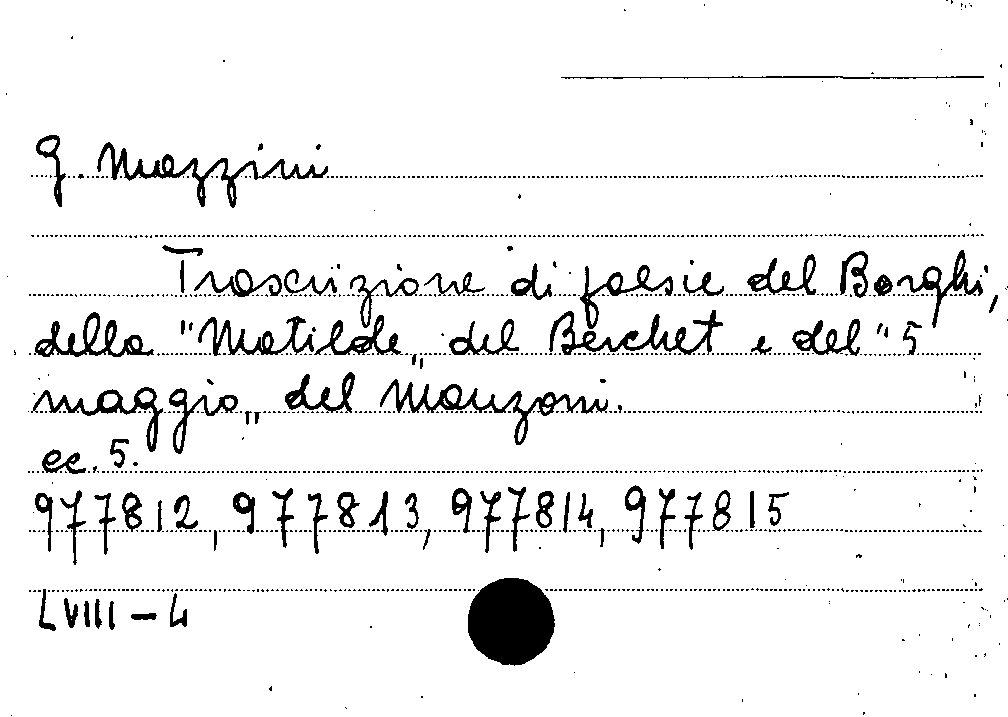 G. Mazzini
Trascrizione di poesie del Borghi,
della "Matilde„ del Berchet e del "5
maggio„ del Manzoni.
cc. 5.
977812, 977813, 977814, 977815
LVIII - 4